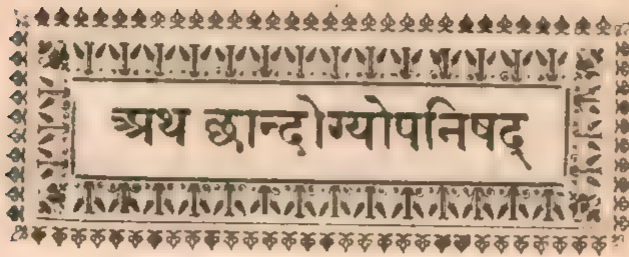 अथ छान्दोग्योपनिषद्